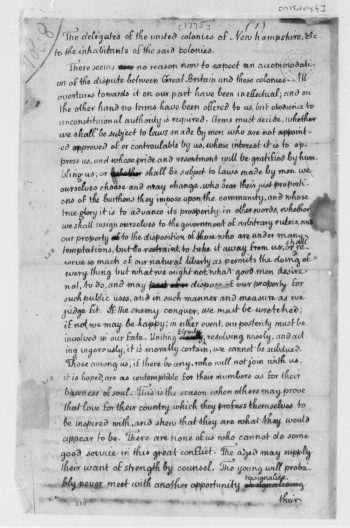 [1775]
(1)
Vol: 8
The delegates of the united colonies of New hampshire, &c
to the inhabitants of the said colonies.
There seems no reason now to expect an accommodati-
on of the dispute between Great-Britain and these colonies. All
overtures towards it on our part have been ineffectual; and on
the other hand no terms have been offered to us, but obedience to
unconstitutional authority is required. Arms must decide, whether
we shall be subject to laws made by men who are not appoint-
ed approved of or controulable by us, whose interest it is to op-
press us, and whose pride and resentment will be gratified by hum-
bling us; or shall be subject to laws made by men we
ourselves choose and may change, who bear their just proporti-
ons of the burthens they impose upon the community, and whose
true glory it is to advance its prosperity: in other words, whether
we shall resign ourselves to the government of arbitrary rulers, and
our property to the disposition of those who are under many
temptations, but no restraint to take it away from us, or shall re-
serve so much of our natural liberty as permits the doing of
every thing but what we ought not, what good men desire
not, to do, and may dispose of our property for
such public uses, and in such manner and measure as we
judge fit. If the enemy conquer, we must be wretched;
if not, we may be happy; in either event, our posterity must be
involved in our fate. Uniting firmly, resolving wisely, and act
ing vigorously, it is morally certain, we cannot be subdued.
Those among us, if there be any, who will not join with us,
it is hoped, are as contemptible for their numbers as for their
baseness of soul. This is the season when others may prove
that love for their country which they profess themselves to
be inspired with, and shew that they are what they would
appear to be. There are none of us who cannot do some
good service in this great conflict. The aged may supply
their want of strength by counsel. The young will proba-
bly never meet with another opportunity to signalize
their